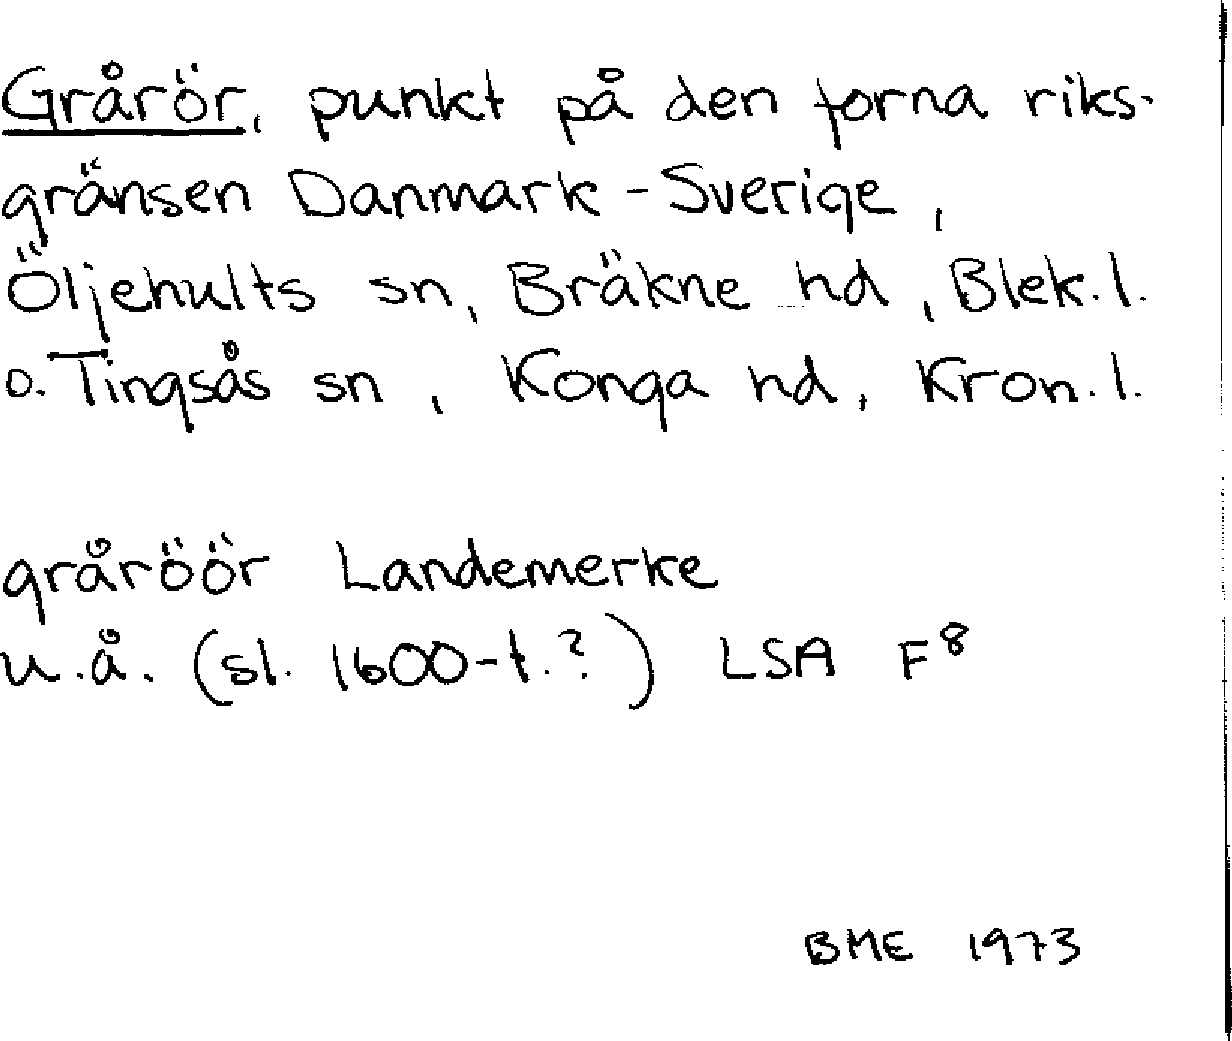 Grårör, punkt på den forna riks-
gränsen Danmark - Sverige,
Öljehults sn, Bräkne hd, Blek. l.
o. Tingsås sn, Konga hd, Kron. l.
gråröör Landemerke
u.å. (sl. 1600-t.?) LSA F⁸
BME 1973